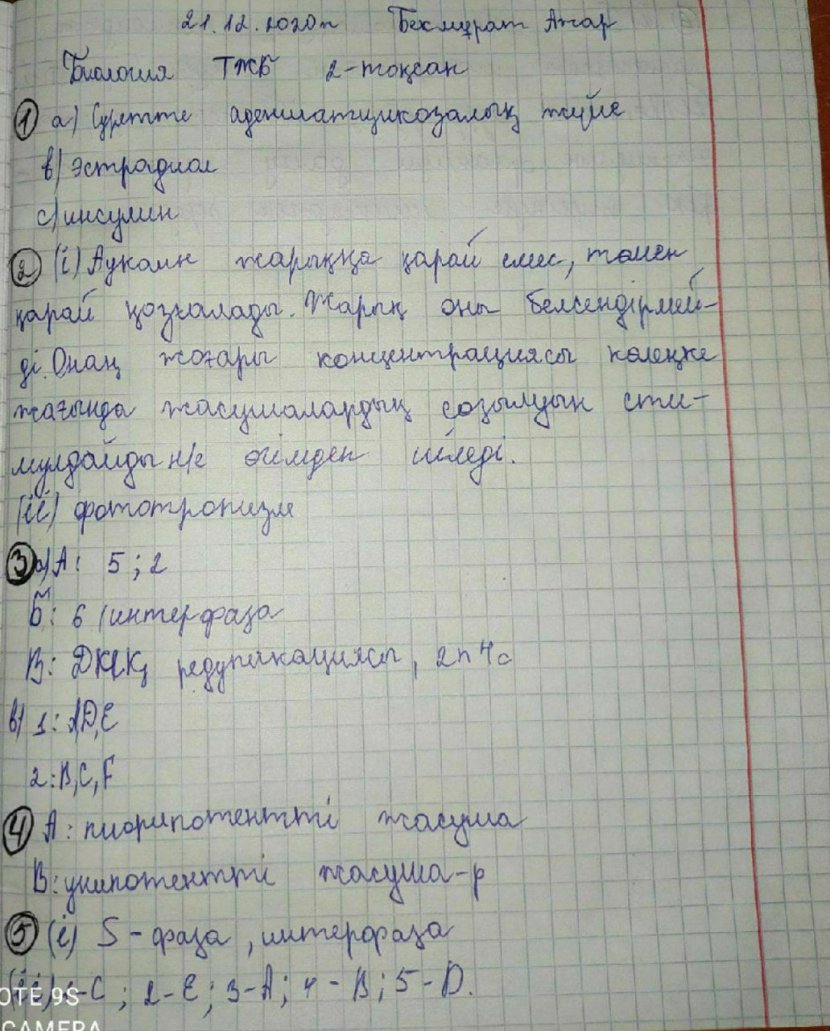 21.12.2020ж Бекмұрат Ажар
Биология ТЖБ 2-тоқсан
① a) Суретте аденилатциклозалық жүйе
в) эстрадиол
с) инсулин
② (i) Ауксин жарыққа қарай емес, төмен
қарай қозғалады. Жарық оны белсендірмей-
ді. Оның жоғары концентрациясы көлеңке
жағында жасушалардың созылуын сти-
мулдайды н/е өсімдік иіледі.
(ii) фототропизм
③ a) A: 5; 2
Б: 6 интерфаза
В: ДНҚ редупликациясы, 2n4c
в) 1: A,D,E
2: B,C,F
④ A: плюрипотентті жасуша
B: унипотентті жасуша-р
⑤ (i) S-фаза, интерфаза
(ii) 1-C; 2-E; 3-A; 4-B; 5-D.
OTE 9S
CAMERA